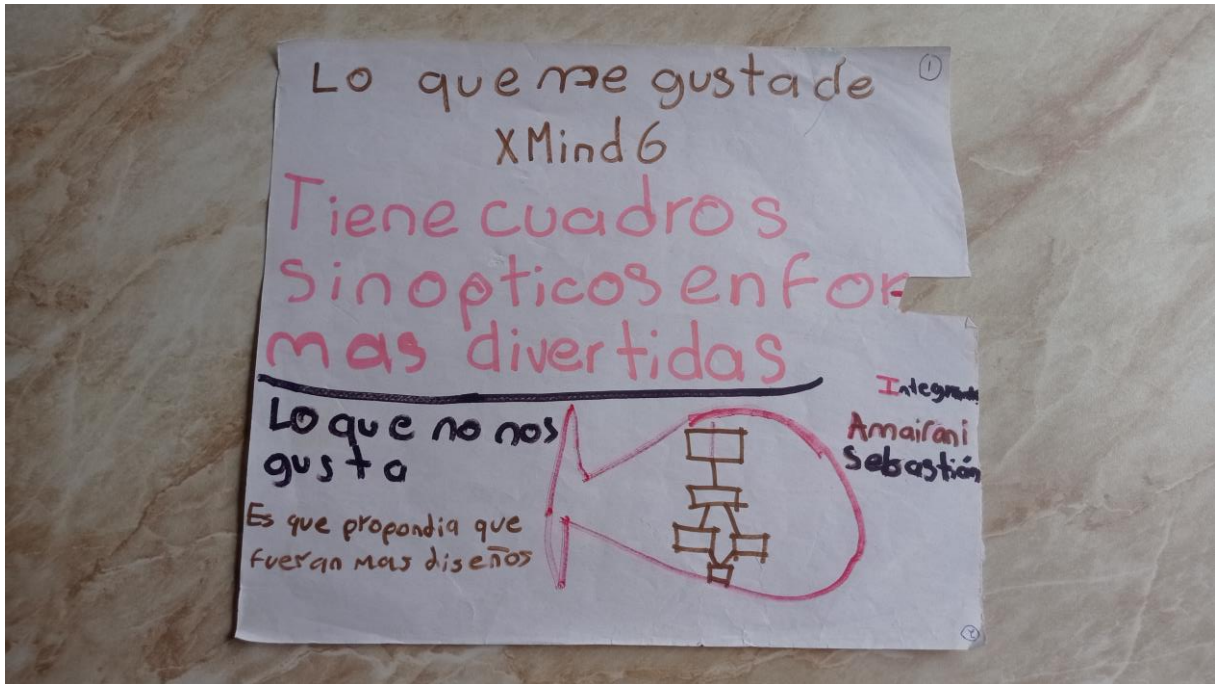 1
Lo que me gusta de
XMind 6
Tiene cuadros
sinopticos en for
mas divertidas
Lo que no nos
gusta
Es que propondia que
fueran mas diseños
Amairani
Sebastián